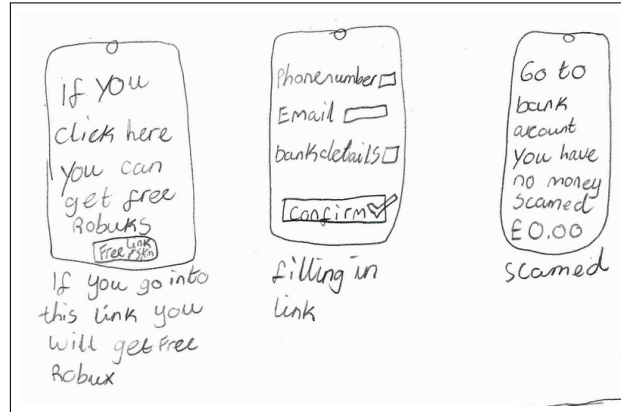 if you
click here
you can
get free
Robuks
Free link
skin
If you go into
this link you
will get Free
Robux
Phonenumber
Email
bankdetails
Confirm
filling in
link
Go to
bank
acount
you have
no money
scamed
£0.00
scamed